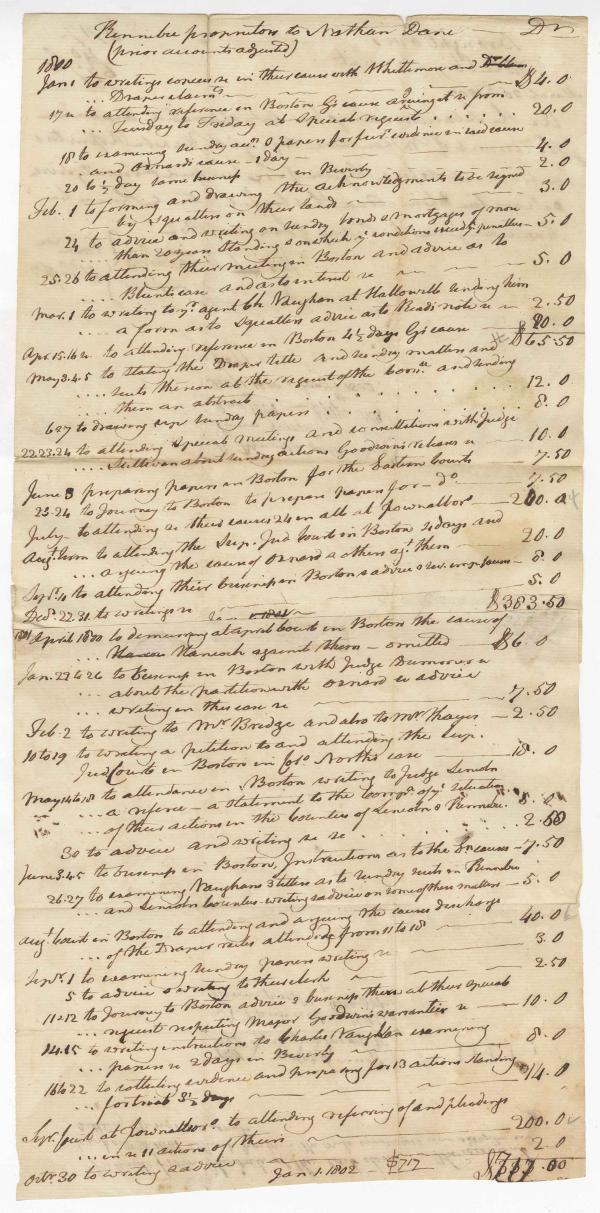 Kennebec proprietors to Nathan Dane — Dr
(prior accounts adjusted)
1800
Jan 1 to writings concer &c in their cause with Whittemore and
... Draper claim — $4.0
17 &c to attending reference in Boston Gs cause arguing it &c from
... Tuesday to Friday at special request ...... 20.0
18 to examining sundry acts & papers for fur. evidence in said cause
.. and Ornards cause - 1 day — 4.0
20 to ½ day same business — in Beverly 2.0
Feb. 1 to forming and drawing the acknowledgments to be signed
by squatters on their lands 3.0
24 to advice and writing on sundry bonds & mortgages of more
... than 20 years standing & on which ye conditions exceed ye penalties — 5.0
25.26 to attending their meeting in Boston and advice as to
.... Blunts case and as to interest &c 5.0
Mar. 1 to writing to yr. agent Ch Vaughan at Hallowell sending him
... a form as to squatters advice as to Reads note &c — 2.50
Apr 15.16 &c to attending reference in Boston 4½ days Gs cause 20.0
$65.50
May 3.4.5 to stating the Draper title and sundry matters and
... suits thereon at the request of the com.tee and sending
... them an abstract ....... 12.0
6 & 7 to drawing up sundry papers ..... 8.0
22.23.24 to attending special meetings and consultations with Judge
.... Sullivan about sundry actions Goodwins releases &c 10.0
June 3 preparing papers in Boston for the Eastern Courts 7.50
23-24 to Journey to Boston to prepare papers for — Do 7.50
July — to attending &c their causes 24 in all at Pownalboro — 200.0
Augt. term to attending the Sup. Jud court in Boston 4 days and
... arguing the cause of Ornard & others agt. them — 20.0
Sept. 4 to attending their business in Boston & advice & 8.0
Decr. 22.31 to writings &c 5.0
$383.50
Jan 1. 1801
1801 April 1800 to demurring at april court in Boston the cause of
... Hancock against them — omitted — $6.0
Jan. 22 to 26 to business in Boston with Judge &c
... about the partition with Ornard &c advice
... writing in this case &c 7.50
Feb. 2 to writing to Mr Bridge and also to Mr Thayer — 2.50
10 to 19 to writing a petition to and attending the Sup.
Jud Courts in Boston in Colo Norths case 18.0
May 14 to 18 to attendance in Boston writing to Judge Lincoln
... a referee — a statement to the of ye situation
... of their actions in the counties of Lincoln & Kennebec 8.0
30 to advice and writing &c &c 2.50
June 3.4.5 to business in Boston, Instructions as to the causes — 7.50
26.27 to examining Vaughans 3 letters as to sundry suits in Kennebec
... and Lincoln counties - writing & advice on some of these matters — 5.0
Augt. Court in Boston to attending and arguing the causes discharge
... of the Draper rules attended from 11 to 18 40.0
Sept. 1 to examining sundry papers writing &c 3.0
5 to advice & writing to their clerk 2.50
11 & 12 to Journey to Boston advice & business there at their special
... request respecting Major Goodwins warranties &c 10.0
14.15 to writing instructions to Charles Vaughan examining
... papers &c 2 days in Beverly 8.0
16 to 22 to collecting evidence and preparing for 13 actions standing
... for trial 3½ days 14.0
Sept. Court at Pownalboro to attending referring of and pleadings
... in &c 11 actions of theirs 200.0
Octr. 30 to writing & advice 2.0
Jan 1. 1802 — $717 $717.00